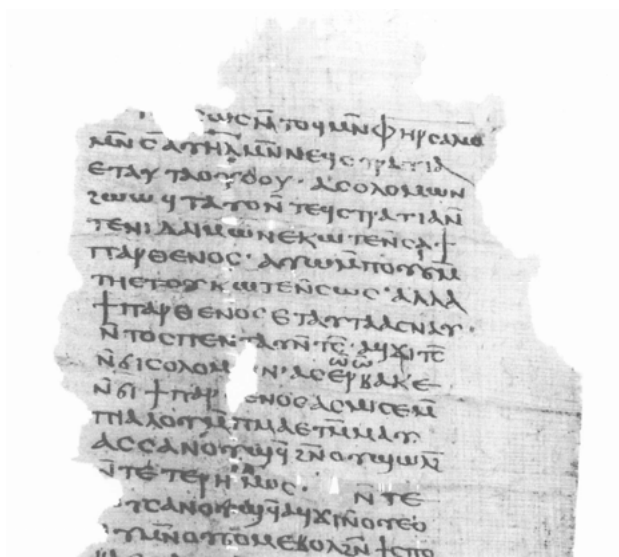 ⲥⲱⲥ ⲛ̅ⲧⲟϥ ⲙⲛ̅ ⲫⲏⲣⲥⲁⲗⲱ
ⲙⲛ̅ ⲥⲁⲩⲏⲗ ⲙⲛ̅ ⲛⲉϥⲥⲧⲣⲁⲧⲓⲁ
ⲉⲧⲁⲩⲧⲁⲟⲩⲟⲟⲩ· ⲁⲥⲟⲗⲟⲙⲱⲛ
ϩⲱⲱϥ ⲧⲁⲩⲟ ⲛ̅ⲧⲉϥⲥⲧⲣⲁⲧⲓⲁ ⲛ̅
ⲧⲉ ⲛⲓⲇⲁⲓⲙⲱⲛ ⲉⲕⲱⲧⲉ ⲛ̅ⲥⲁ ϯ
ⲡⲁⲣⲑⲉⲛⲟⲥ· ⲁⲩⲱ ⲙ̅ⲡⲟⲩϭⲙ̅
ⲧⲏ ⲉⲧⲟⲩⲕⲱⲧⲉ ⲛ̅ⲥⲱⲥ· ⲁⲗⲗⲁ
ϯⲡⲁⲣⲑⲉⲛⲟⲥ ⲉⲧⲁⲩⲧⲁⲁⲥ ⲛⲁⲩ·
ⲛ̅ⲧⲟⲥ ⲡⲉⲛⲧⲁⲩⲛ̅ⲧⲥ̅· ⲁϥϫⲓⲧⲥ̅
ⲛ̅ϭⲓ ⲥⲟⲗⲟⲙⲱⲛ· ⲁⲥⲉⲣⲃⲁⲕⲉ
ⲛ̅ϭⲓ ϯⲡⲁⲣⲑⲉⲛⲟⲥ ⲁⲥⲙⲓⲥⲉ ⲙ̅
ⲡⲓⲁⲗⲟⲩ ⲙ̅ⲡⲙⲁ ⲉⲧⲙ̅ⲙⲁⲩ·
ⲁⲥⲥⲁⲛⲟⲩϣϥ̅ ϩⲛ̅ ⲟⲩϣⲱⲗ̅
ⲛ̅ⲧⲉ ⲧⲉⲣⲏⲙⲟⲥ· ⲛ̅ⲧⲉ
ⲣⲟⲩⲥⲁⲛⲟⲩϣϥ̅ ⲁϥϫⲓ ⲛ̅ⲟⲩⲉⲟ
ⲟⲩ ⲙⲛ̅ ⲟⲩϭⲟⲙ ⲉⲃⲟⲗ ϩⲛ̅ ϯⲥⲡⲟ